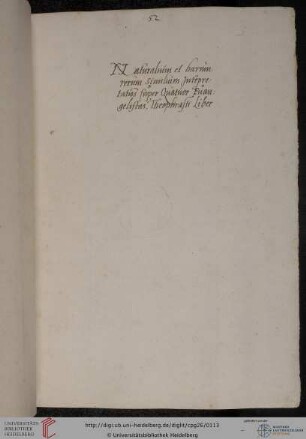 52
Naturalium et harum
rerum similium Interpre
tatio super Quatuor Euan
gelistas, Theophrasti Liber
UNIVERSITÄTS-
BIBLIOTHEK
HEIDELBERG
http://digi.ub.uni-heidelberg.de/diglit/cpg26/0113
© Universitätsbibliothek Heidelberg